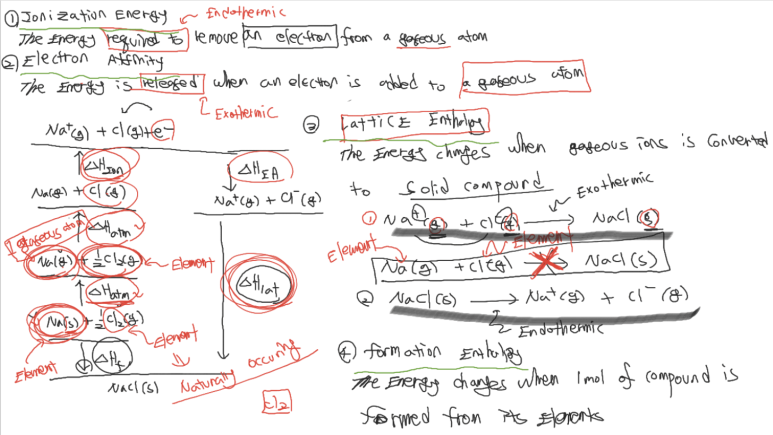 ① Ionization Energy Endothermic
The Energy required to remove an electron from a gaseous atom
② Electron Affinity
The Energy is released when an electron is added to a gaseous atom
Exothermic
Na⁺(g) + Cl(g) + e⁻
ΔH Ion
ΔH EA
Na(g) + Cl(g)
Na⁺(g) + Cl⁻(g)
1 gaseous atom
ΔH atm
Na(g) + ½Cl₂(g) Element
ΔH atm
ΔH lat
Na(s) + ½Cl₂(g)
Element
Element
ΔH f
NaCl(s)
Naturally occuring
Cl₂
③ Lattice Enthalpy
The Energy changes when gaseous ions is converted
to solid compound
Exothermic
① Na⁺(g) + Cl⁻(g) → NaCl(s)
Element Element
Na(g) + Cl(g) → NaCl(s)
② NaCl(s) → Na⁺(g) + Cl⁻(g)
Endothermic
④ formation Enthalpy
The Energy changes when 1mol of compound is
formed from its elements